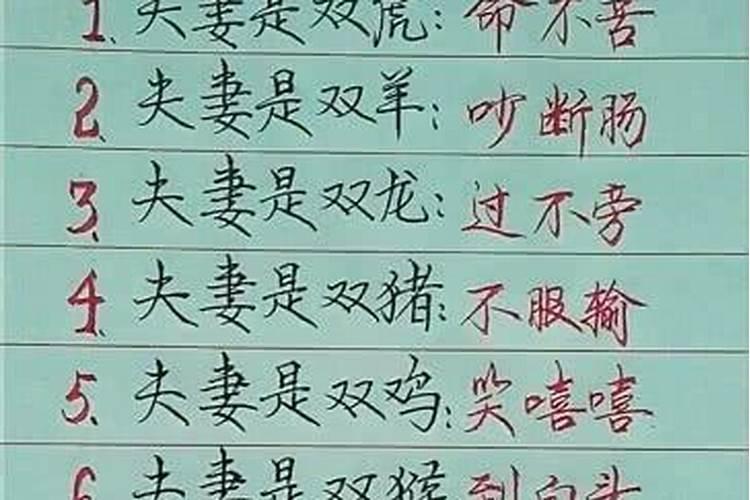 1.夫妻是双虎:命不苦
2.夫妻是双羊:吵断肠
3.夫妻是双龙:过不旁
4.夫妻是双猪:不服输
5.夫妻是双鸡:笑嘻嘻
6.夫妻是双猴 到白头